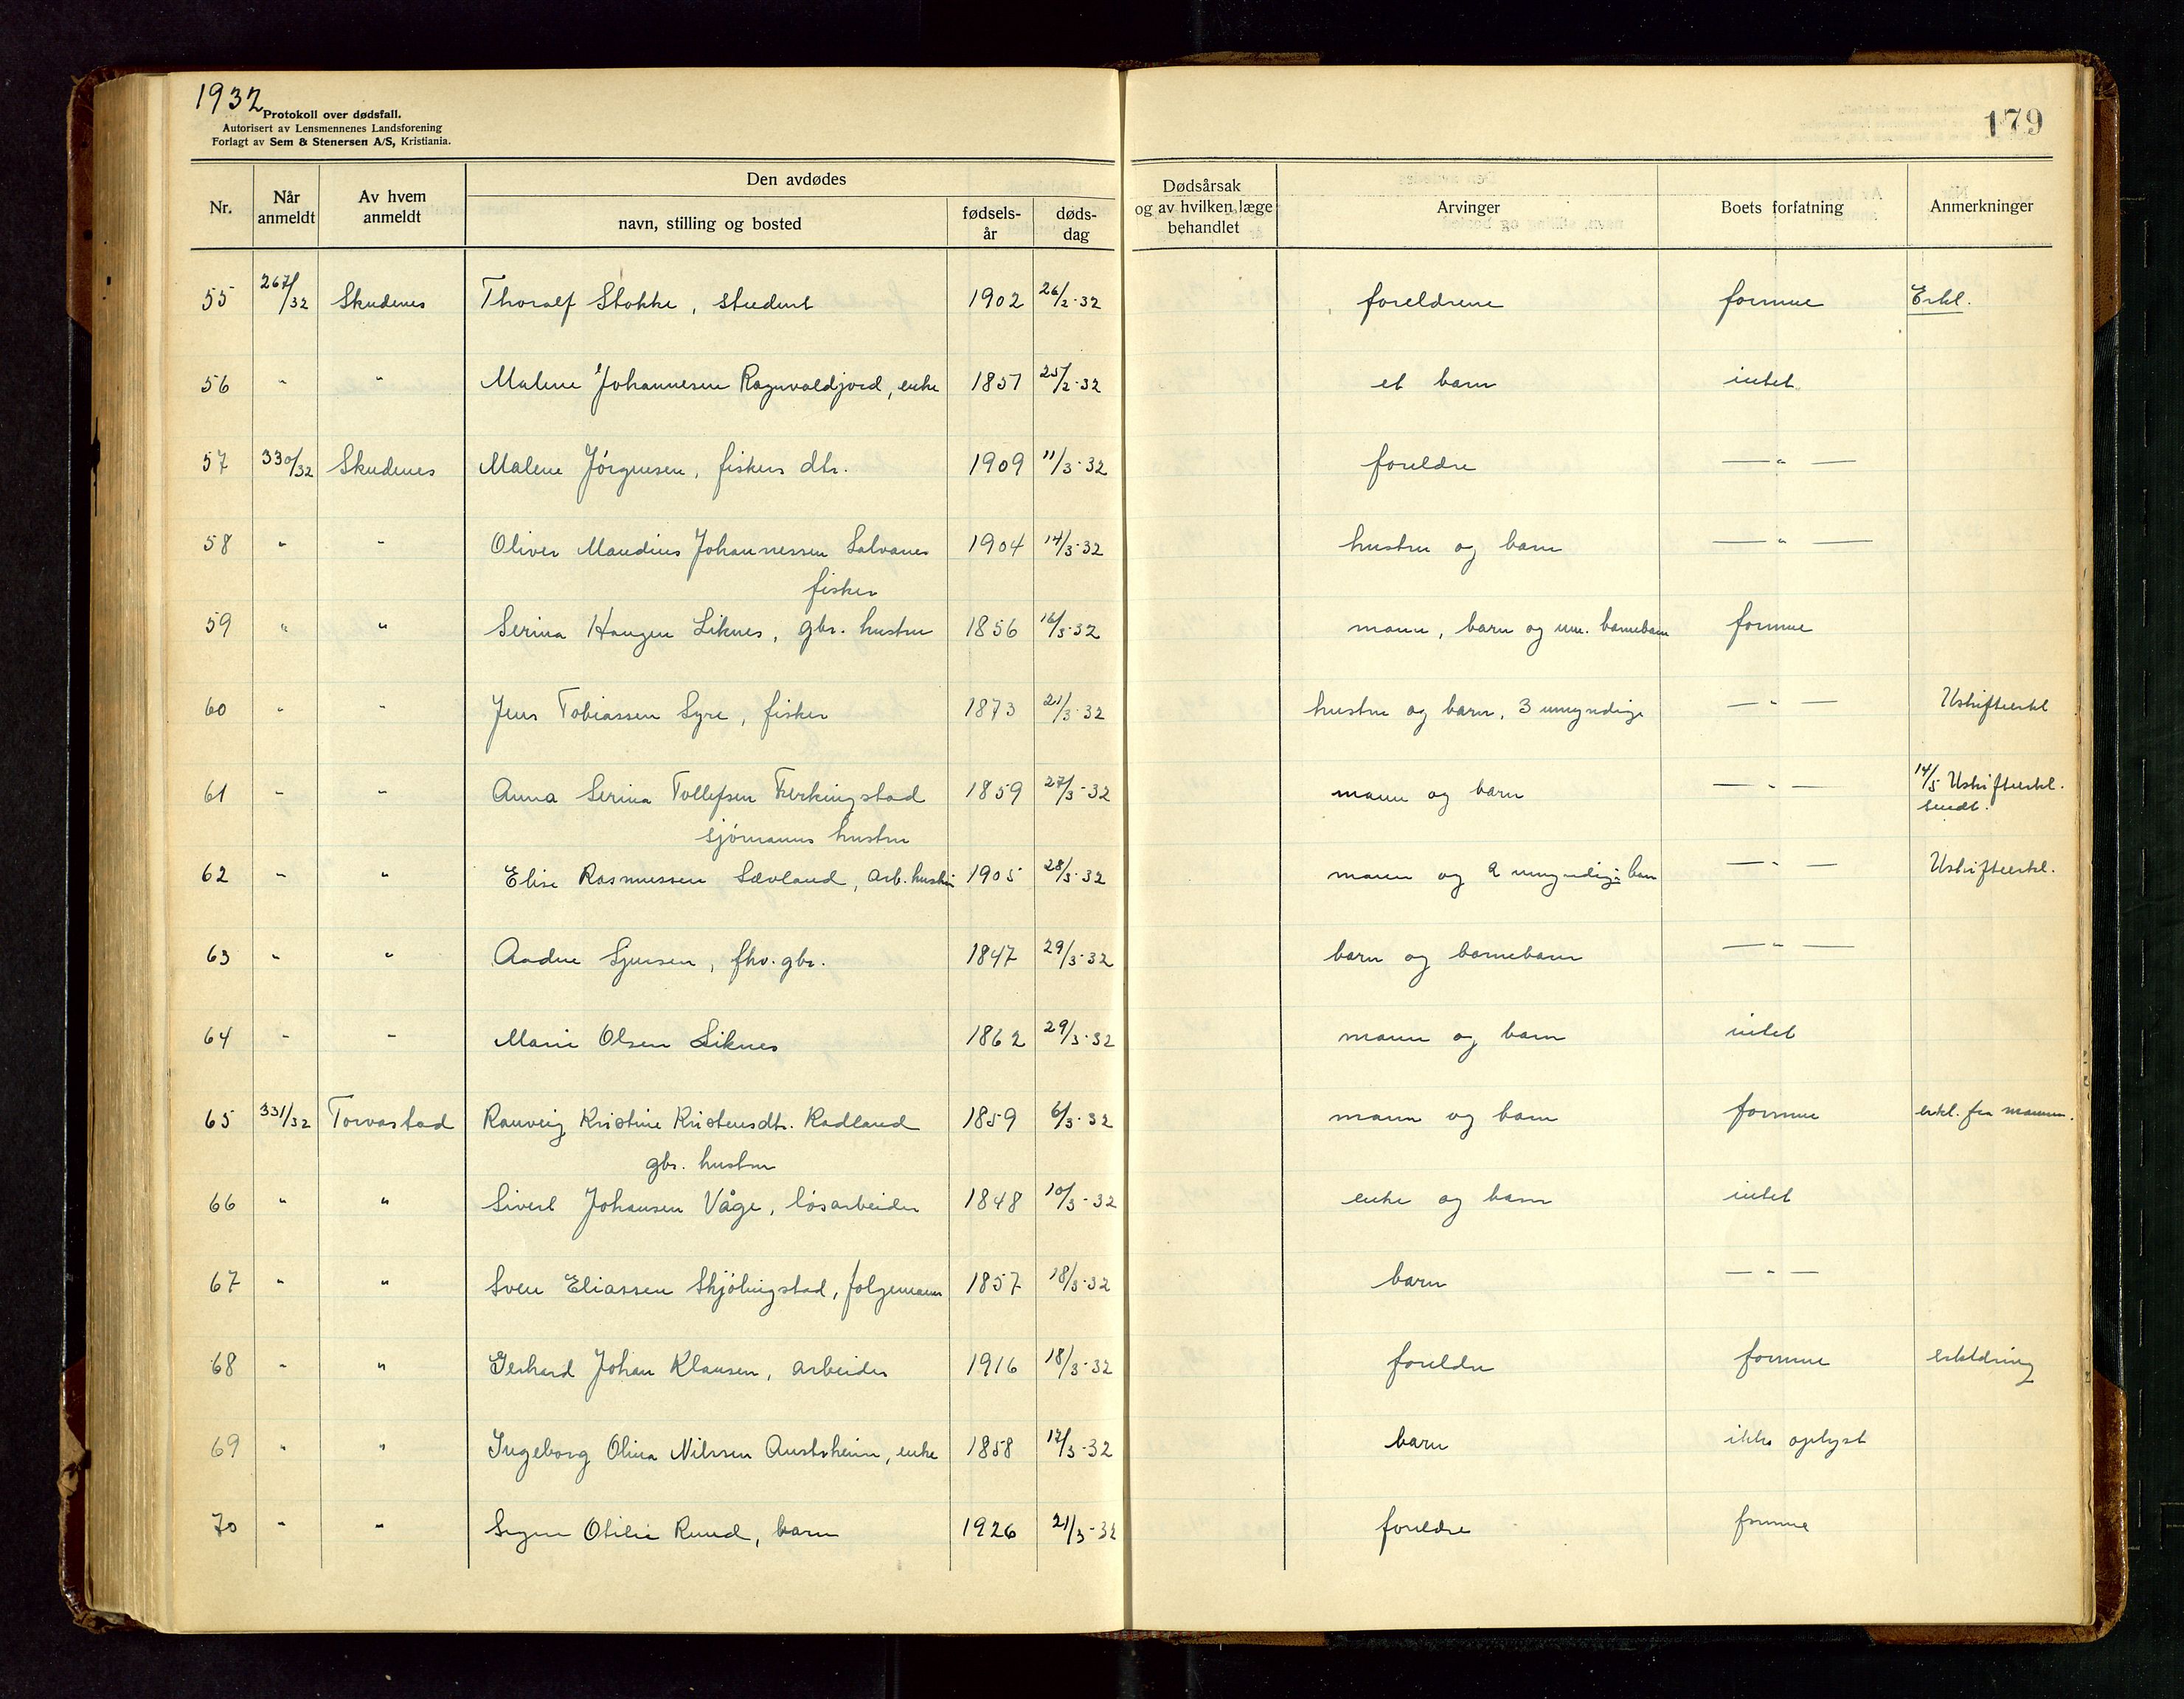 1932
Protokoll over dødsfall.
Autorisert av Lensmennenes Landsforening
Forlagt av Sem & Stenersen A/S, Kristiania.
179
Nr. Når anmeldt Av hvem anmeldt Den avdødes navn, stilling og bosted fødselsår dødsdag Dødsårsak og av hvilken læge behandlet Arvinger Boets forfatning Anmerkninger
55 267/32 Skudenes Thoralf Stokke, student 1902 26/2-32 foreldrene formue Erkl.
56 " " Malene Johannesen Ragnvaldjord, enke 1851 25/2-32 et barn intet
57 330/32 Skudenes Malene Jörgensen, fiskers dtr. 1909 11/3-32 foreldre — " —
58 " " Oliver Maudius Johannessen Salvanes 1904 14/3-32 hustru og barn — " —
fisker
59 " " Serina Haugen Liknes, gbr. hustru 1856 16/3-32 mann, barn og um. barnebarn formue
60 " " Jens Tobiassen Syre, fisker 1873 21/3-32 hustru og barn, 3 umyndige — " — Uskifteerkl
61 " " Anna Serina Tollefsen Ferkingstad 1859 27/3-32 mann og barn — " — 14/5 Uskifteerkl. sendt.
sjömanns hustru
62 " " Elise Rasmussen Sævland, arb. hustru 1905 28/3-32 mann og 2 umyndige barn — " — Uskifteerkl.
63 " " Aadne Sjursen, fhv. gbr. 1847 29/3-32 barn og barnebarn — " —
64 " " Marie Olsen Liknes 1862 29/3-32 mann og barn intet
65 331/32 Torvastad Rauveig Kristine Kristensdtr. Kadland 1859 6/3-32 mann og barn formue erkl. fra mannen.
gbr. hustru
66 " " Sivert Johansen Våge, lösarbeider 1848 10/3-32 enke og barn intet
67 " " Sven Eliassen Skjölingstad, folgemann 1857 18/3-32 barn — " —
68 " " Gerhard Johan Klausen, arbeider 1916 18/3-32 foreldre formue erklæring
69 " " Ingeborg Olina Nilssen Austrheim, enke 1858 17/3-32 barn ikke oplyst
70 " " Signe Otilie Ruud, barn 1926 21/3-32 foreldre formue